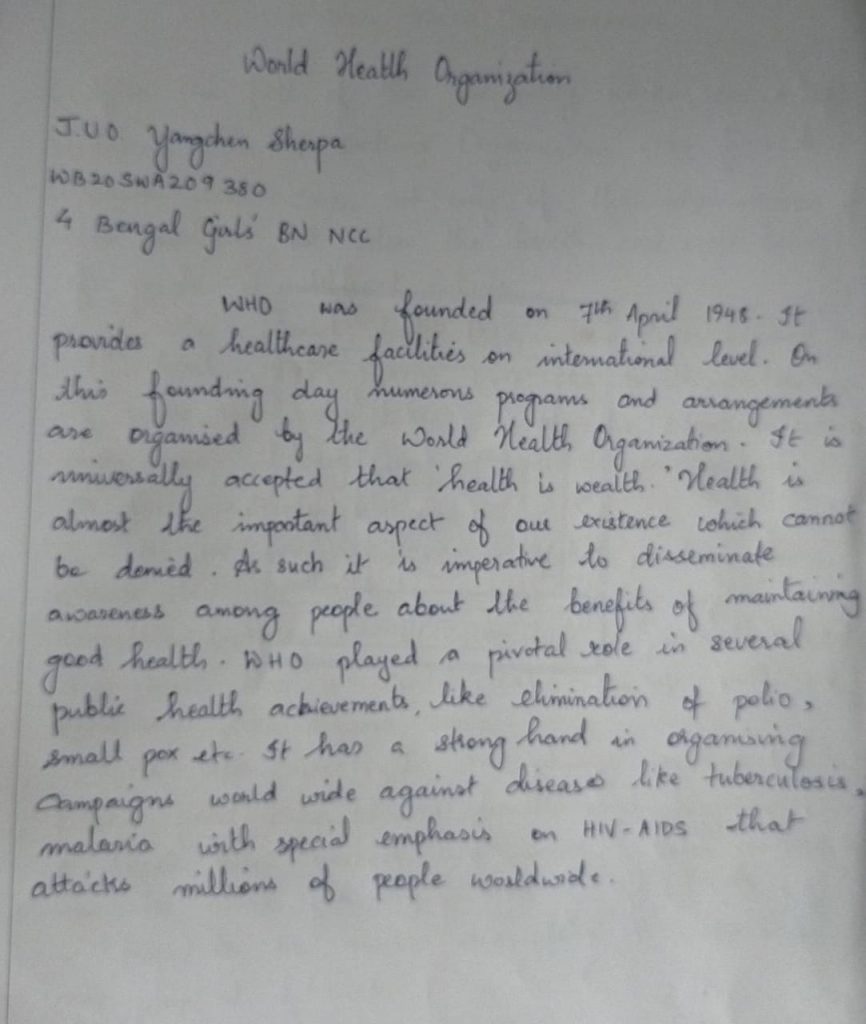 World Health Organization
J.U.O. Yangchen Sherpa
WB20SWA209380
4 Bengal Girls' BN NCC
WHO was founded on 7th April 1948. It
provides a healthcare facilities on international level. On
this founding day numerous programs and arrangements
are organised by the World Health Organization. It is
universally accepted that 'health is wealth.' Health is
almost the important aspect of our existence which cannot
be denied. As such it is imperative to disseminate
awareness among people about the benefits of maintaining
good health. WHO played a pivotal role in several
public health achievements, like elimination of polio,
small pox etc. It has a strong hand in organising
campaigns world wide against diseases like tuberculosis,
malaria with special emphasis on HIV-AIDS that
attacks millions of people worldwide.